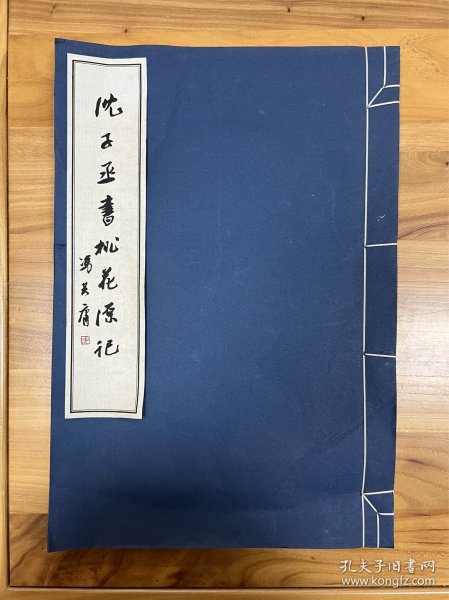 沈子丞書桃花源记
馮其庸
孔夫子旧书网
www.kongfz.com